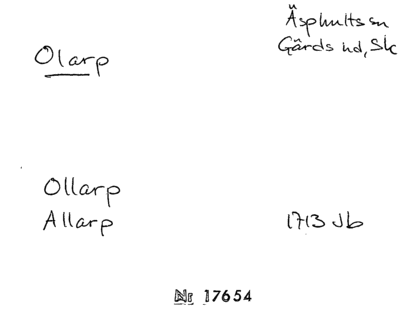 Olarp
Äsphults sn
Gärds hd, Sk
Ollarp
Allarp
1713 Jb
Nr 17654